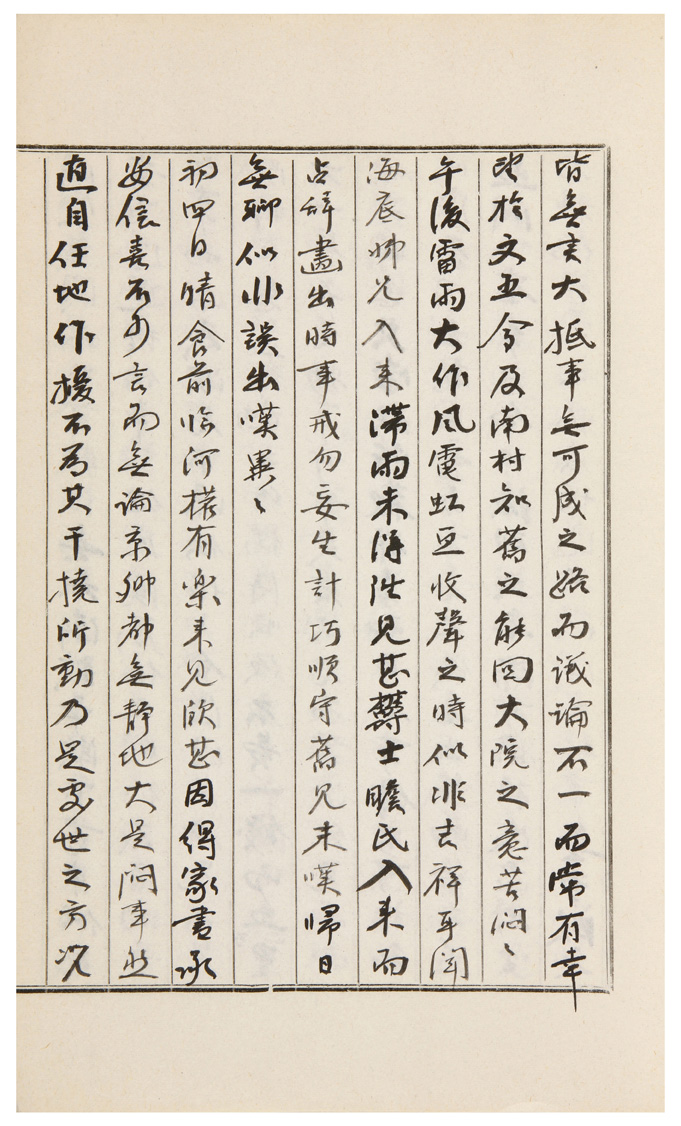 皆無実大抵事無可成之路而議論不一而常有幸
望於文五令及南村知舊之能回大院之意苦悶々
午後雷雨大作風電虹亘收聲之時似非吉祥耳聞
海底姉兄入来滞雨未得往見甚鬱士瞻氏入来而
占辞畫出時事戒勿妄生計巧順守舊見末嘆歸日
無聊似非誤出嘆異々
初四日晴食前臨河檥有樂来見欣甚因得家書承
安信喜不可言而無論京鄕都無靜地大是悶事然
直自任地作擾不為其干撓所動乃是處世之方況